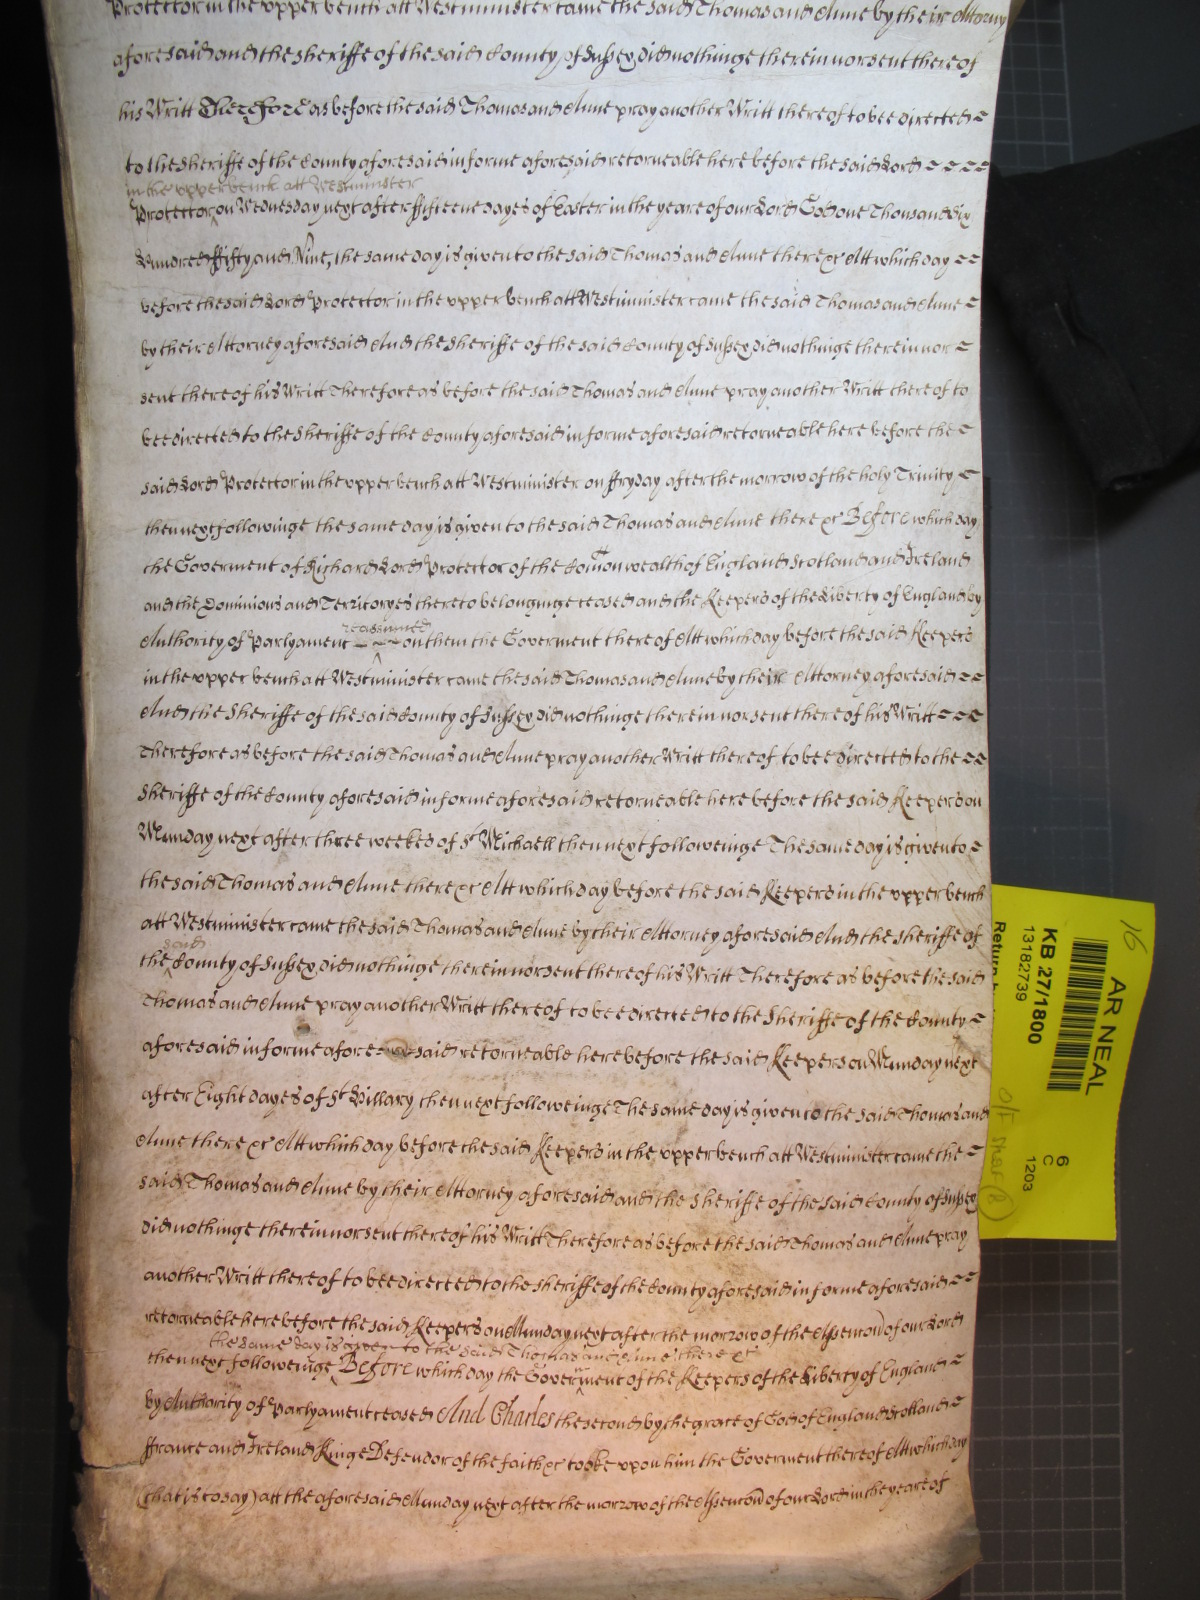 Protector in the upper bench att Westminister came the said Thomas and Anne by their Attorny
aforesaid and the Sheriffe of the said County of Sussex did nothinge therein nor sent thereof
his Writt Therefore as before the said Thomas and Anne pray another Writt thereof to bee directed ~
to the Sheriffe of the County aforesaid in forme aforesaid retorneable here before the said Lord ~ ~ ~ ~
in the upper bench att Westminster
Protector ^ on Wednesday next after fifteene dayes of Easter in the yeare of our Lord God one Thousand Six
Hundred ffifty and Nine, the same day is given to the said Thomas and Anne there &c Att which day ~ ~
before the said Lord Protector in the upper bench att Westminister came the said Thomas and Anne ~
by their Attorney aforesaid And the Sheriffe of the said County of Sussex did nothinge therein nor ~
sent thereof his Writt Therefore as before the said Thomas and Anne pray another Writt thereof to
bee directed to the Sheriffe of the County aforesaid in forme aforesaid retorneable here before the ~
said Lord Protector in the upper bench att Westminister on ffryday after the morrow of the holy Trinity ~
then next followinge the same day is given to the said Thomas and Anne there &c Before which day
the Goverment of Richard Lord Protector of the Comon wealth of England Scotland and Ireland
and the Dominions and Territoryes thereto belonginge ceased and the Keepers of the Liberty of England by
reassumed
Authority of Parlyament ^ on them the Goverment thereof Att which day before the said Keepers
in the upper bench att Westminister came the said Thomas and Anne by their Attorney aforesaid ~ ~
And the Sheriffe of the said County of Sussex did nothinge therein nor sent thereof his Writt ~ ~ ~
Therefore as before the said Thomas and Anne pray another Writt thereof to bee directed to the ~ ~
Sheriffe of the County aforesaid in forme aforesaid retorneable here before the said Keepers on
Munday next after three weekes of St Michaell then next followeinge The same day is given to ~
the said Thomas and Anne there &c Att which day before the said Keepers in the upper bench
att Westminister came the said Thomas and Anne by their Attorney aforesaid And the Sheriffe of
said
the ^ County of Sussex did nothinge therein nor sent thereof his Writt Therefore as before the said
Thomas and Anne pray another Writt thereof to bee directed to the Sheriffe of the County ~
aforesaid in forme afore said retorneable here before the said Keepers on Munday next
after Eight dayes of St Hillary then next followeinge The same day is given to the said Thomas and
Anne there &c Att which day before the said Keepers in the upper bench att Westminister came the ~
said Thomas and Anne by their Attorney aforesaid and the Sheriffe of the said County of Sussex
did nothinge therein nor sent thereof his Writt Therefore as before the said Thomas and Anne pray
another Writt thereof to bee directed to the Sheriffe of the County aforesaid in forme aforesaid ~ ~
retorneable here before the said Keepers on Munday next after the morrow of the Assencon of our Lord
the same day is given to the said Thomas and Anne there &c
then next followeinge ^ Before which day the Goverment of the Keepers of the Liberty of England ~
by Authority of Parlyament ceased And Charles the second by the grace of God of England Scotland ~
ffrance and Ireland Kinge Defendor of the faith &c tooke upon him the Goverment thereof Att which day
(that is to say) att the aforesaid Munday next after the morrow of the Assencon of our Lord in the yeare of
16
AR NEAL
KB 27/1800
13182739
6
C
1203